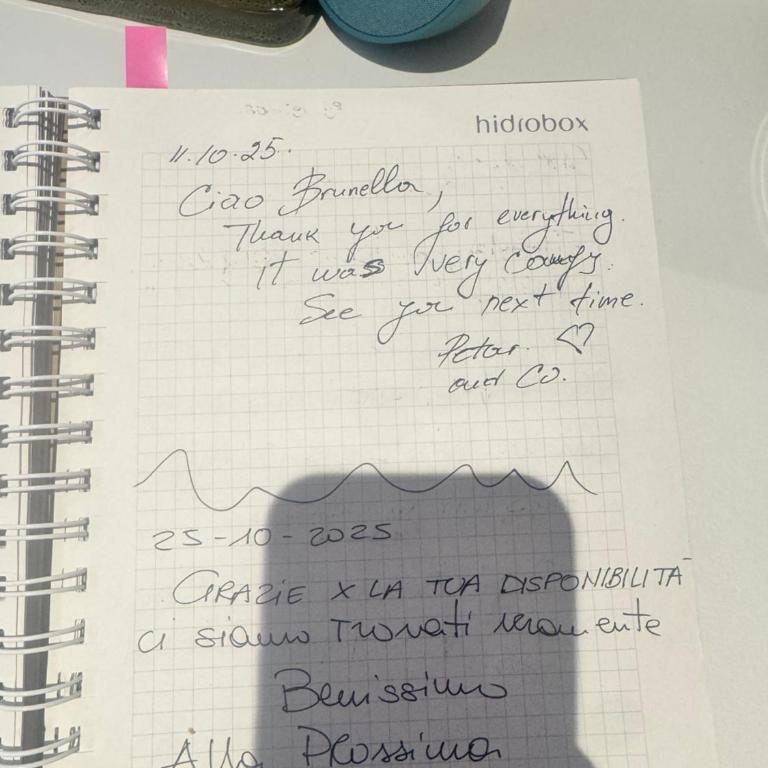 hidrobox
11.10.25.
Ciao Brunella,
Thank you for everything.
it was very comfy.
See you next time.
Petar. ♡
and Co.
25-10-2025
GRAZIE X LA TUA DISPONIBILITÀ
ci siamo Trovati veramente
Benissimo
Alla Prossima